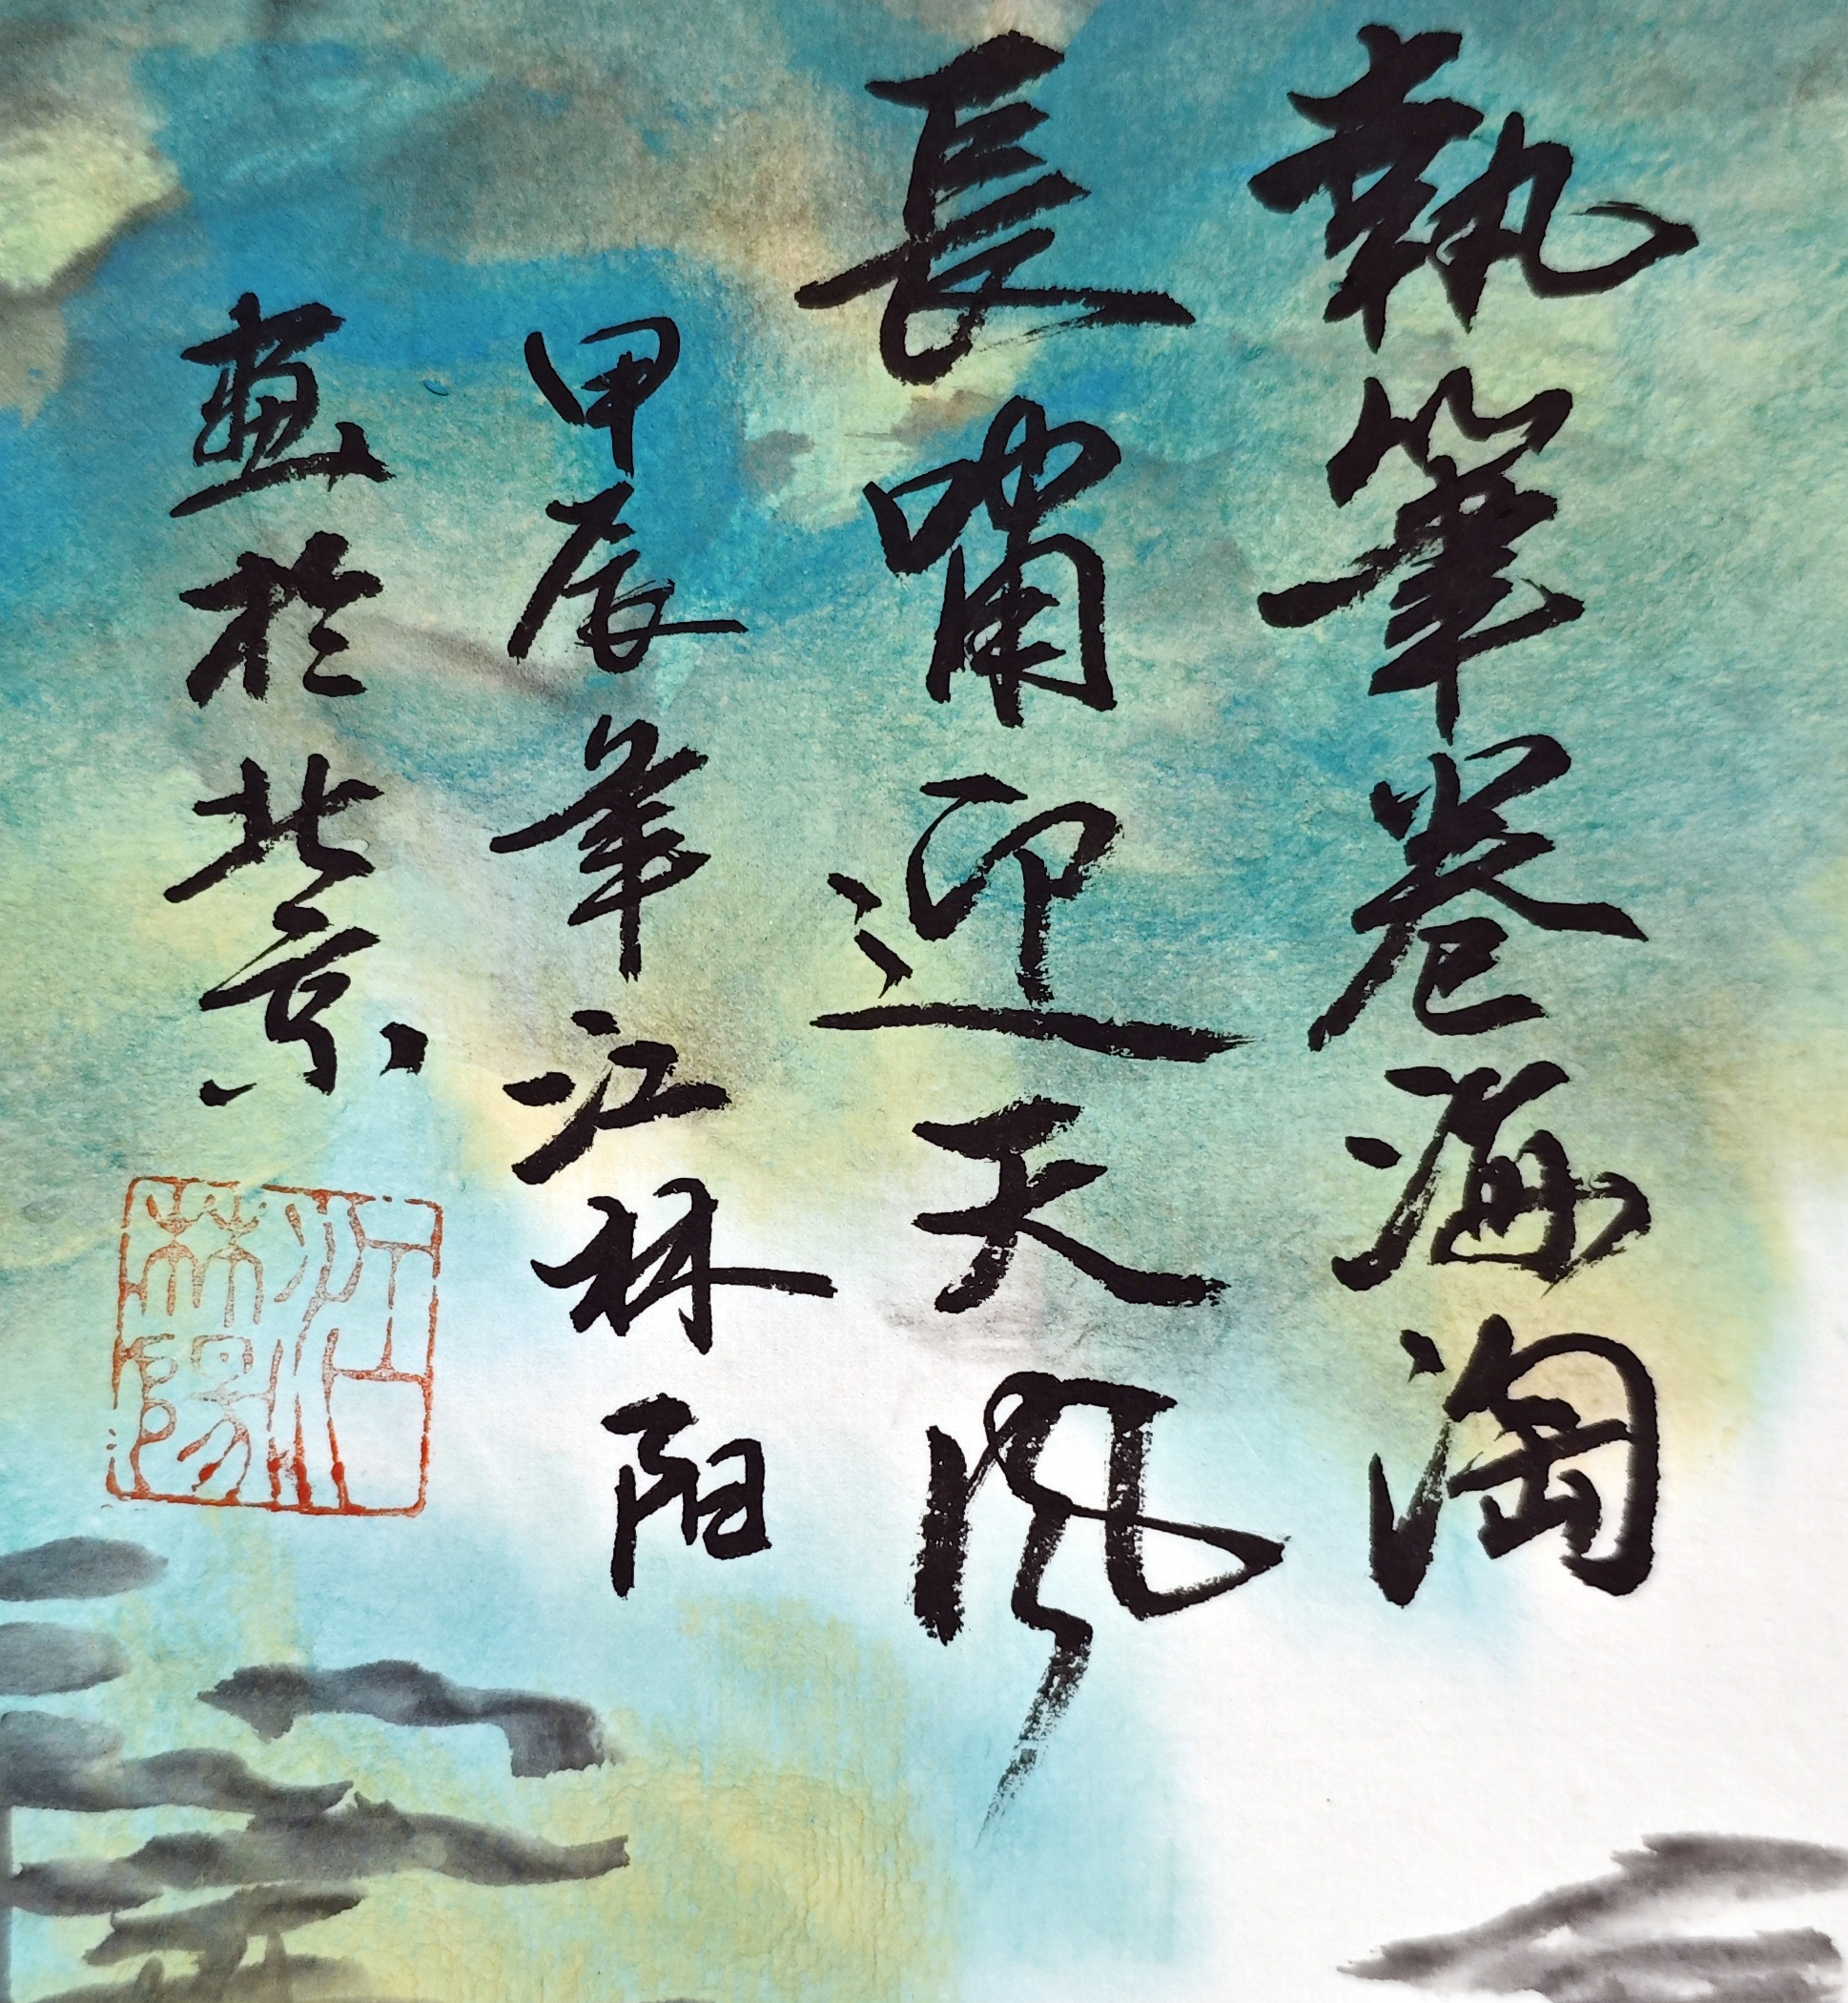 執筆卷海淘
長嘯迎天風
甲辰年江林阳
画於北京
江林陽